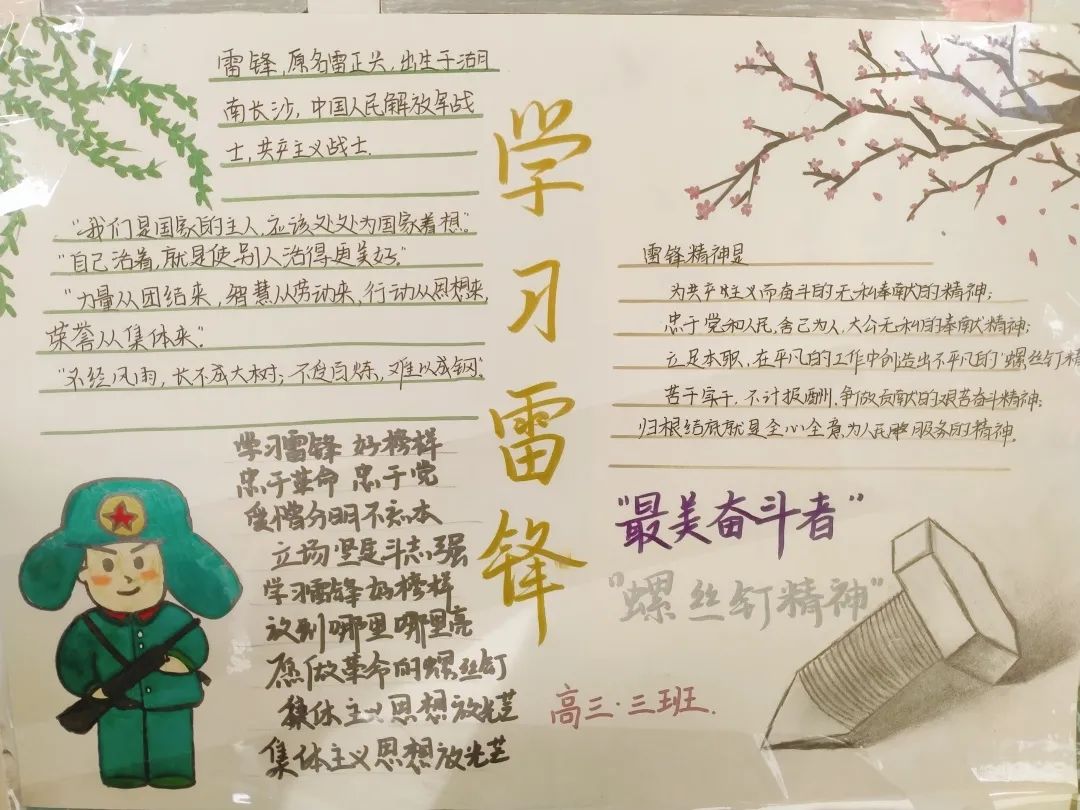 学习雷锋
雷锋,原名雷正兴,出生于湖
南长沙,中国人民解放军战
士,共产主义战士.
“我们是国家的主人,应该处处为国家着想。”
“自己活着,就是使别人活得更美好.”
“力量从团结来,智慧从劳动来,行动从思想来,
荣誉从集体来.”
“不经风雨,长不成大树;不受百炼,难以成钢”
学习雷锋 好榜样
忠于革命 忠于党
爱憎分明不忘本
立场坚定斗志强
学习雷锋 好榜样
放到哪里哪里亮
愿做革命的螺丝钉
集体主义思想放光芒
集体主义思想放光芒
雷锋精神是
为共产主义而奋斗的无私奉献的精神;
忠于党和人民,舍己为人,大公无私的奉献精神;
立足本职,在平凡的工作中创造出不平凡的“螺丝钉精
苦干实干,不计报酬,争做贡献的艰苦奋斗精神;
归根结底就是全心全意为人民服务的精神.
“最美奋斗者”
“螺丝钉精神”
高三·三班.